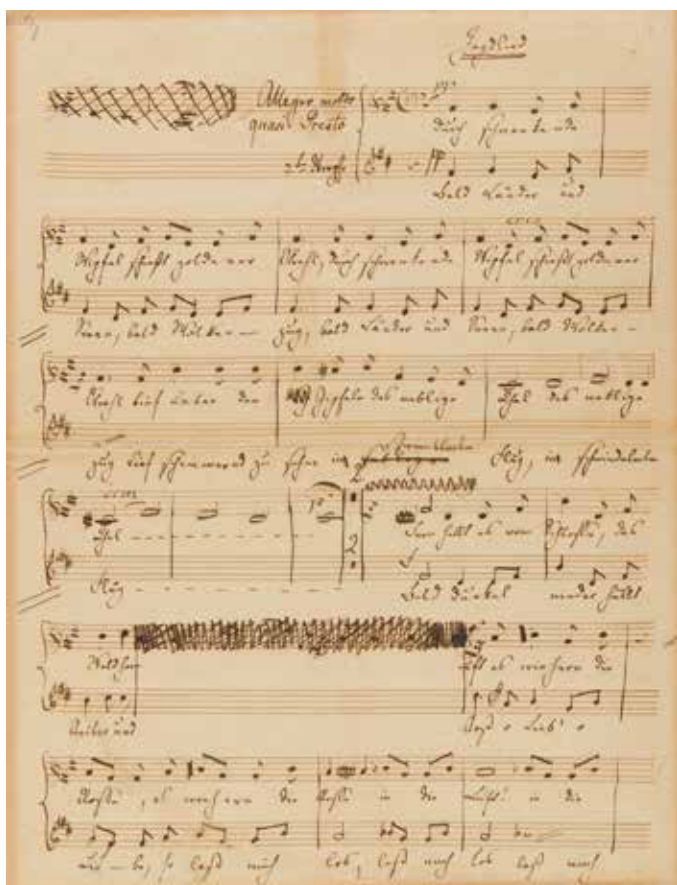 Jagdlied
Allegro molto
quasi Presto
durch schwankende
2te Strophe
Bald Länder und
Wipfel schießt goldener Strahl, durch schwankende Wipfel schießt goldener
Seeen, bald Wolken- zug, bald Länder und Seeen, bald Wolken-
Strahl tief unter den Gipfeln das neblige Thal das neblige
zug tief schimmernd zu sehn in schwindelndem Flug, in schwindelndem
Thal
Fern hallt es vom Schlosse, das
2.
Flug
Bald Dunkel wieder hüllt
Waldhorn
es wiehern die
Reiter und
Roß o Lieb' o
Rosse, es wiehern die Rosse in die Luft in die
Lie-be, so laß mich los, laß mich los laß mich